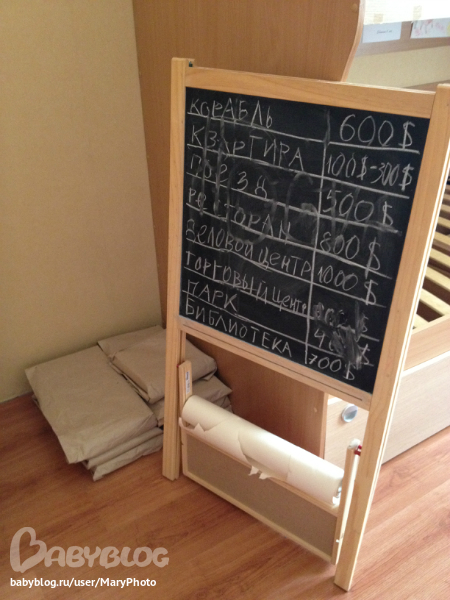 КОРАБЛЬ 600$
КВАРТИРА 100$-300$
ПОЕЗД 500$
РЕСТОРАН 800$
ДЕЛОВОЙ ЦЕНТР 1000$
ТОРГОВЫЙ ЦЕНТР
ПАРК
БИБЛИОТЕКА 700$
BABYBLOG
babyblog.ru/user/MaryPhoto